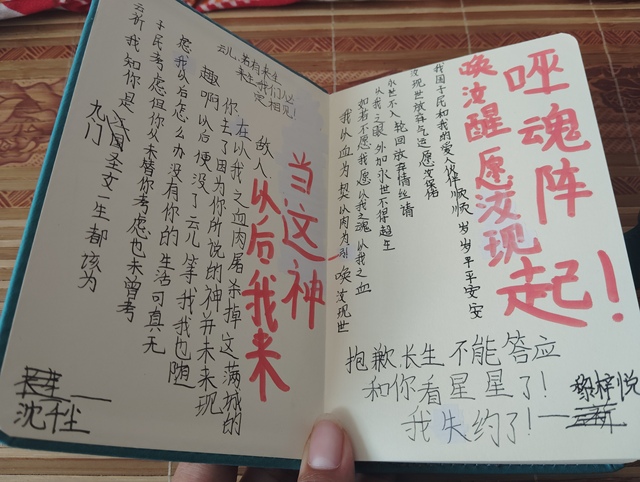 哑魂阵
起！
唤汝醒愿汝现
我国子民和我的爱人伙伴顺顺岁岁平平安安
汝现世放弃气运愿汝保佑
永世不入轮回放弃情丝请
从我之眼外加永世不得超生
如若不愿我愿以我之魂从我之血
我从血为契以肉为引唤汝现世
抱歉长生不能答应
和你看星星了！
我失约了！——
黎梓悦
当这神
以后我来
故人
在以我之血肉屠杀掉这满城的
你主了因为你所说的神并未来现
趣啊以后便没了云儿等我我也随
虑我以后怎么办没有你的生活可真无
于民考虑但你从未替你考虑也未曾考
云祈我知你是国圣女一生都该为
九门
云儿若有来生
来生我们必
定相见！
沈千尘